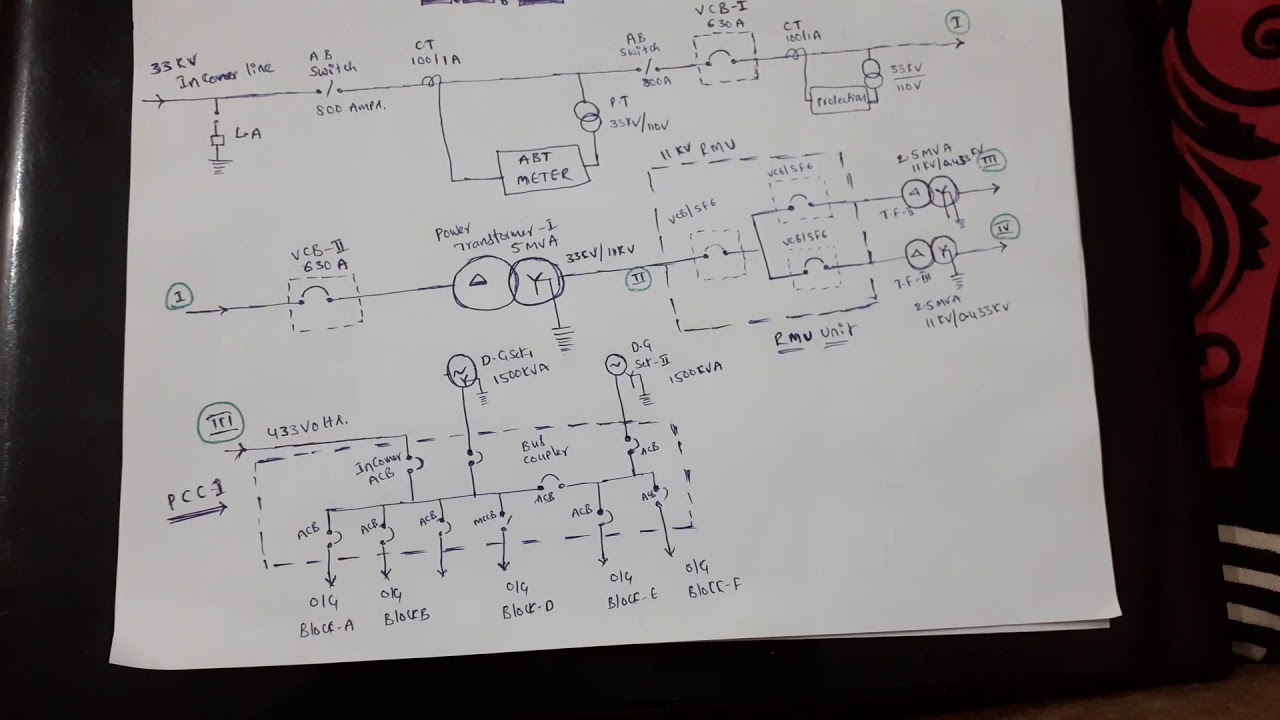 33KV
Incomer line
AB
Switch
800 Ampr.
L-A
CT
100/1A
ABT
METER
P.T
33KV/110V
AB
Switch
800A
VCB-I
630A
CT
100/1A
Protection
33KV
110V
I
I
VCB-II
630A
Power
Transformer-I
5MVA
Δ
Y
33KV/11KV
II
11KV RMU
VCB/SF6
VCB/SF6
VCB/SF6
RMU Unit
2.5MVA
11KV/0.433KV
Δ
Y
T.F-II
III
Δ
Y
T.F-III
IV
2.5MVA
11KV/0.433KV
D.G Set-1
1500KVA
D.G
Set-II
1500KVA
III
433Volts.
PCC-I
Incomer
ACB
Bus
coupler
ACB
ACB
ACB
ACB
ACB
MCCB
ACB
ACB
O/G
Block-A
O/G
BlockB
O/G
Block-D
O/G
Block-E
O/G
Block-F